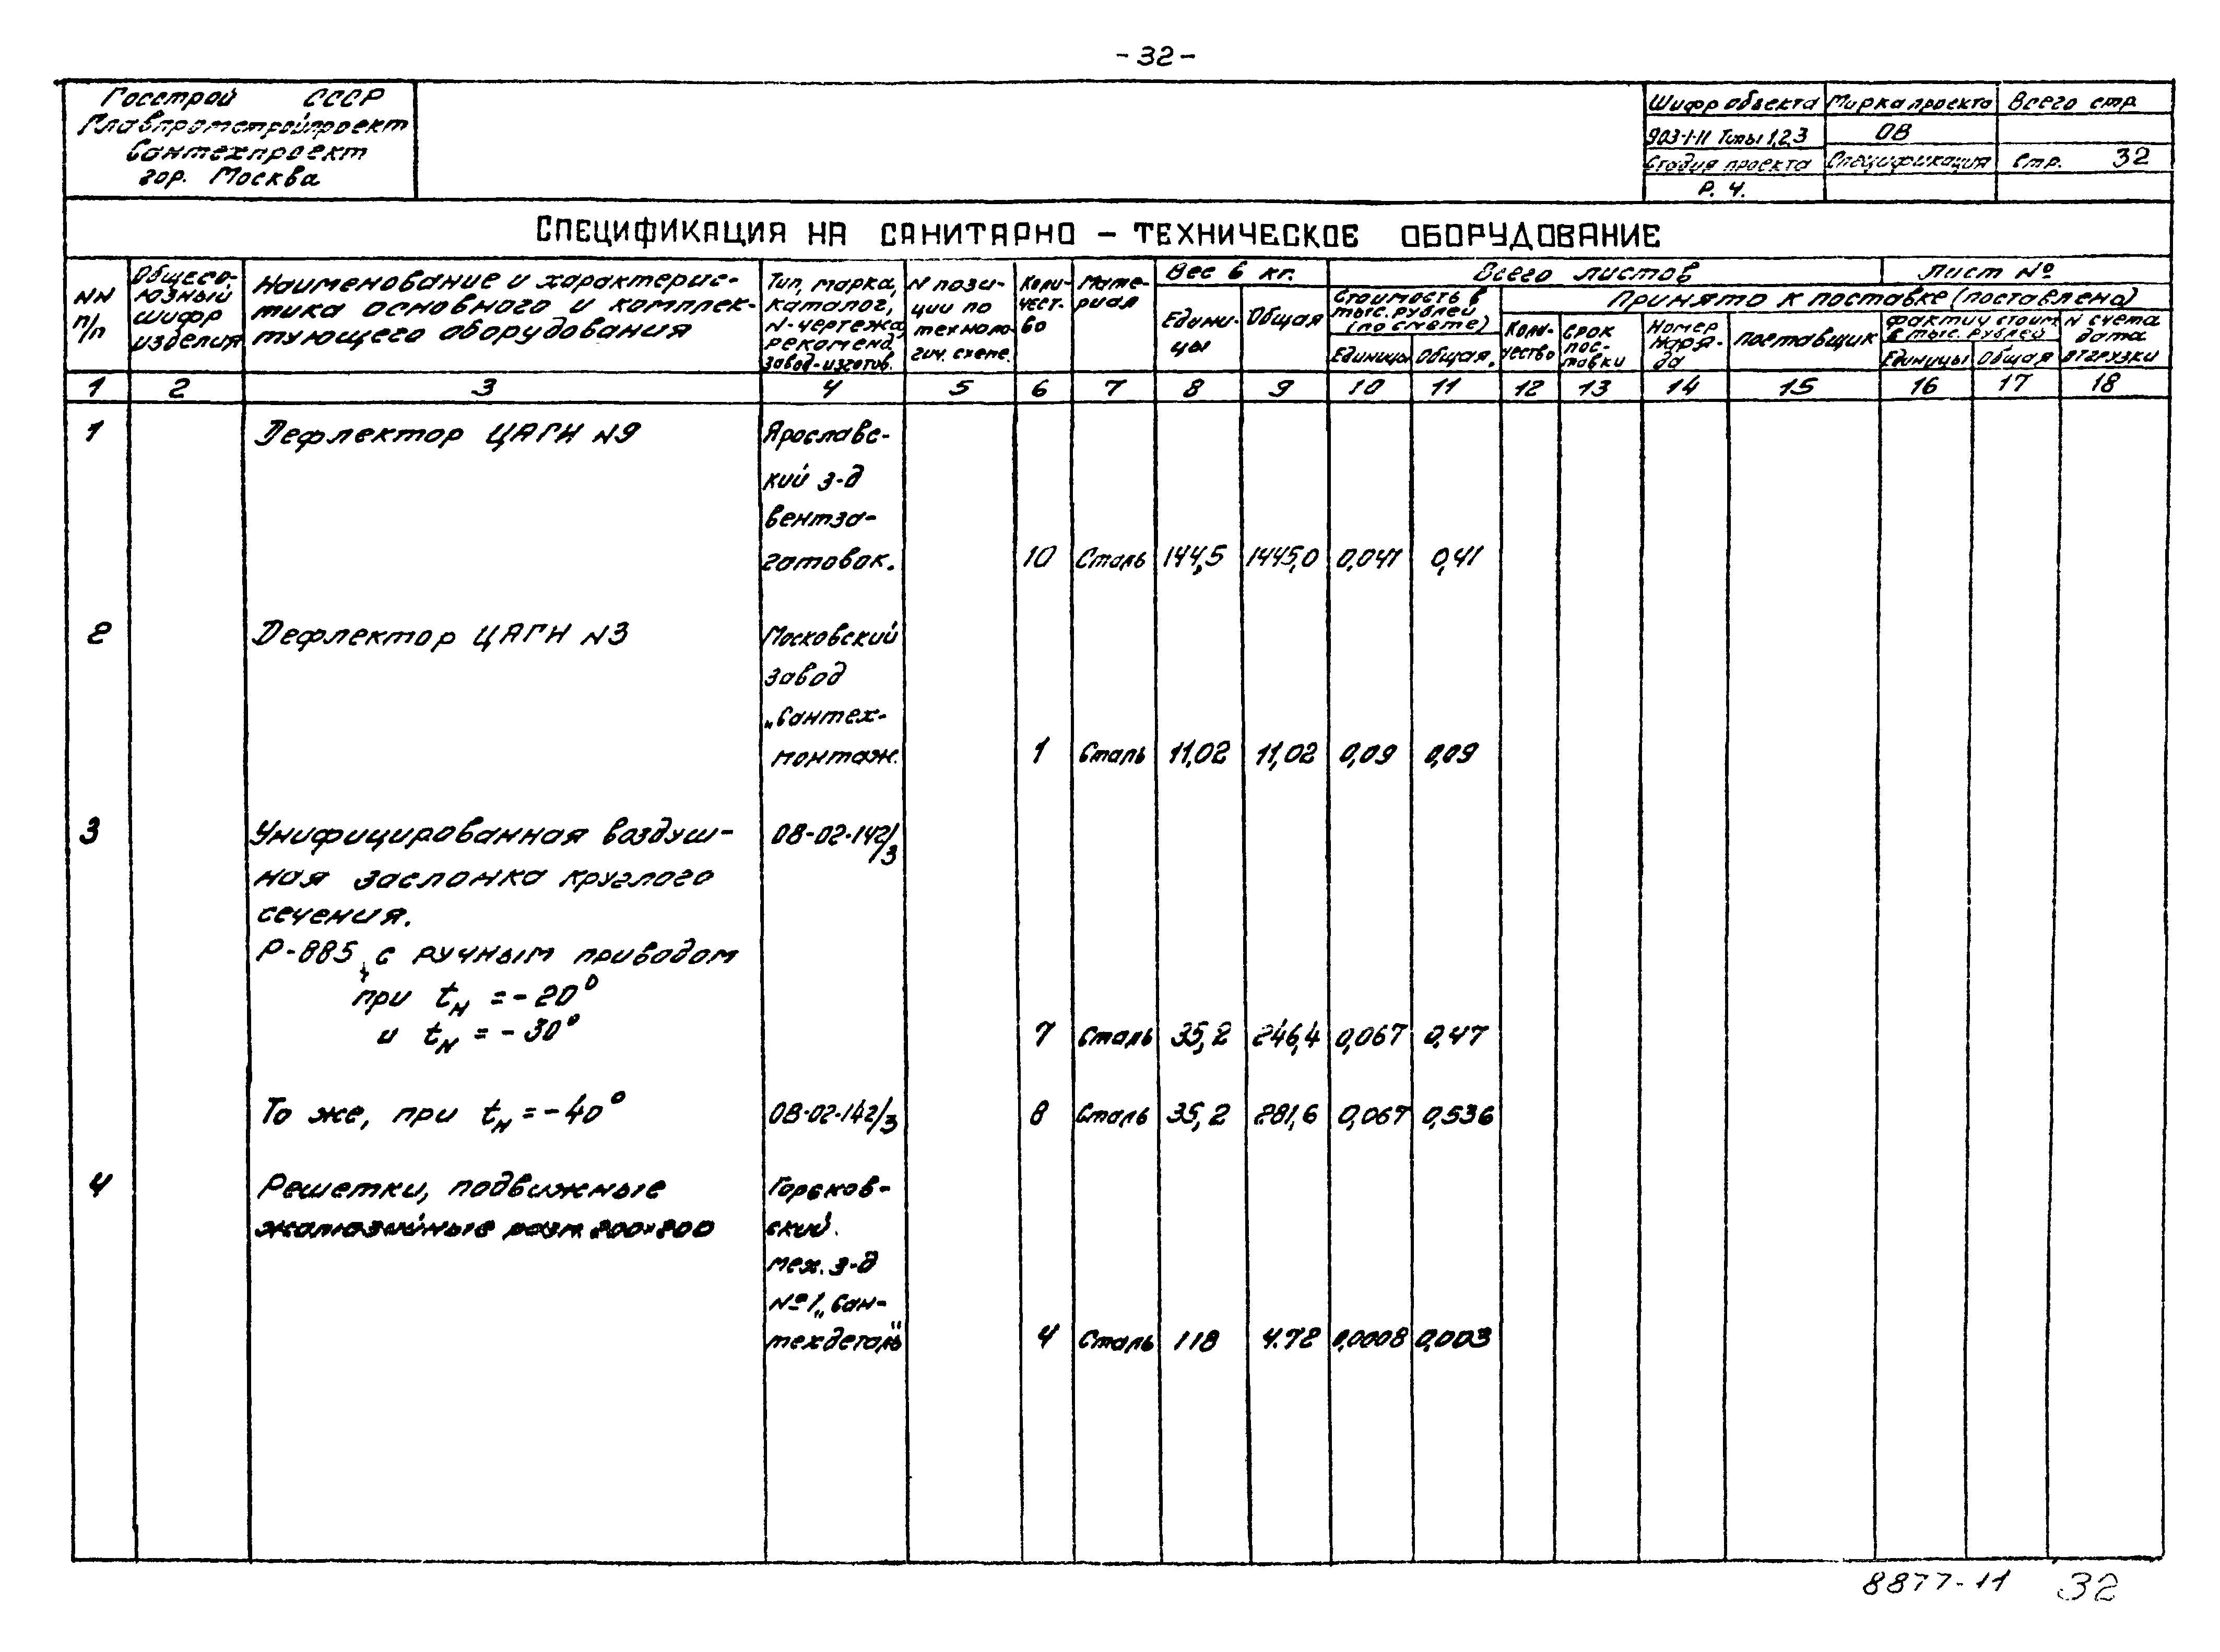 -32-
Госстрой СССР
Главпромстройпроект
Сантехпроект
гор. Москва
Шифр объекта Марка проекта Всего стр.
903-1-11 Типы 1,2,3 ОВ
Стадия проекта Спецификация Стр. 32
Р. Ч.
СПЕЦИФИКАЦИЯ НА САНИТАРНО – ТЕХНИЧЕСКОЕ ОБОРУДОВАНИЕ
NN п/п
Общесо-
юзный
шифр
изделия
Наименование и характерис-
тика основного и комплек-
тующего оборудования
Тип, марка,
каталог,
N-чертежа
рекоменд.
завод-изготов.
N пози-
ции по
техноло-
гич. схеме.
Коли-
чест-
во
Мате-
риал
Вес в кг.
Едини-
цы
Общая
Всего листов
Лист №
Стоимость в
тыс. рублей
(по смете)
Единицы Общая.
Принято к поставке (поставлено)
Коли-
чество
Срок
пос-
тавки
Номер
наря-
да
Поставщик
Фактич стоим
в тыс. рублей
Единицы Общая
N счета
дата
отгрузки
1 2 3 4 5 6 7 8 9 10 11 12 13 14 15 16 17 18
1 Дефлектор ЦАГН N9 Ярославс-
кий з-д
вентза-
готовок. 10 Сталь 144,5 1445,0 0,041 0,41
2 Дефлектор ЦАГН N3 Московский
завод
„Сантех-
монтаж. 1 Сталь 11,02 11,02 0,09 0,09
3 Унифицированная воздуш- 08-02-142/3
ная заслонка круглого
сечения.
Р-885, с ручным приводом
при tн = -20°
и tн = -30° 7 Сталь 35,2 246,4 0,067 0,47
То же, при tн = -40° 08-02-142/3 8 Сталь 35,2 281,6 0,067 0,536
4 Решетки, подвижные Горьков-
жалюзийные разм 200×200 ский.
мех. з-д
№1 „Сан-
техдеталь" 4 Сталь 118 4.72 0,0008 0,003
8877-11 32